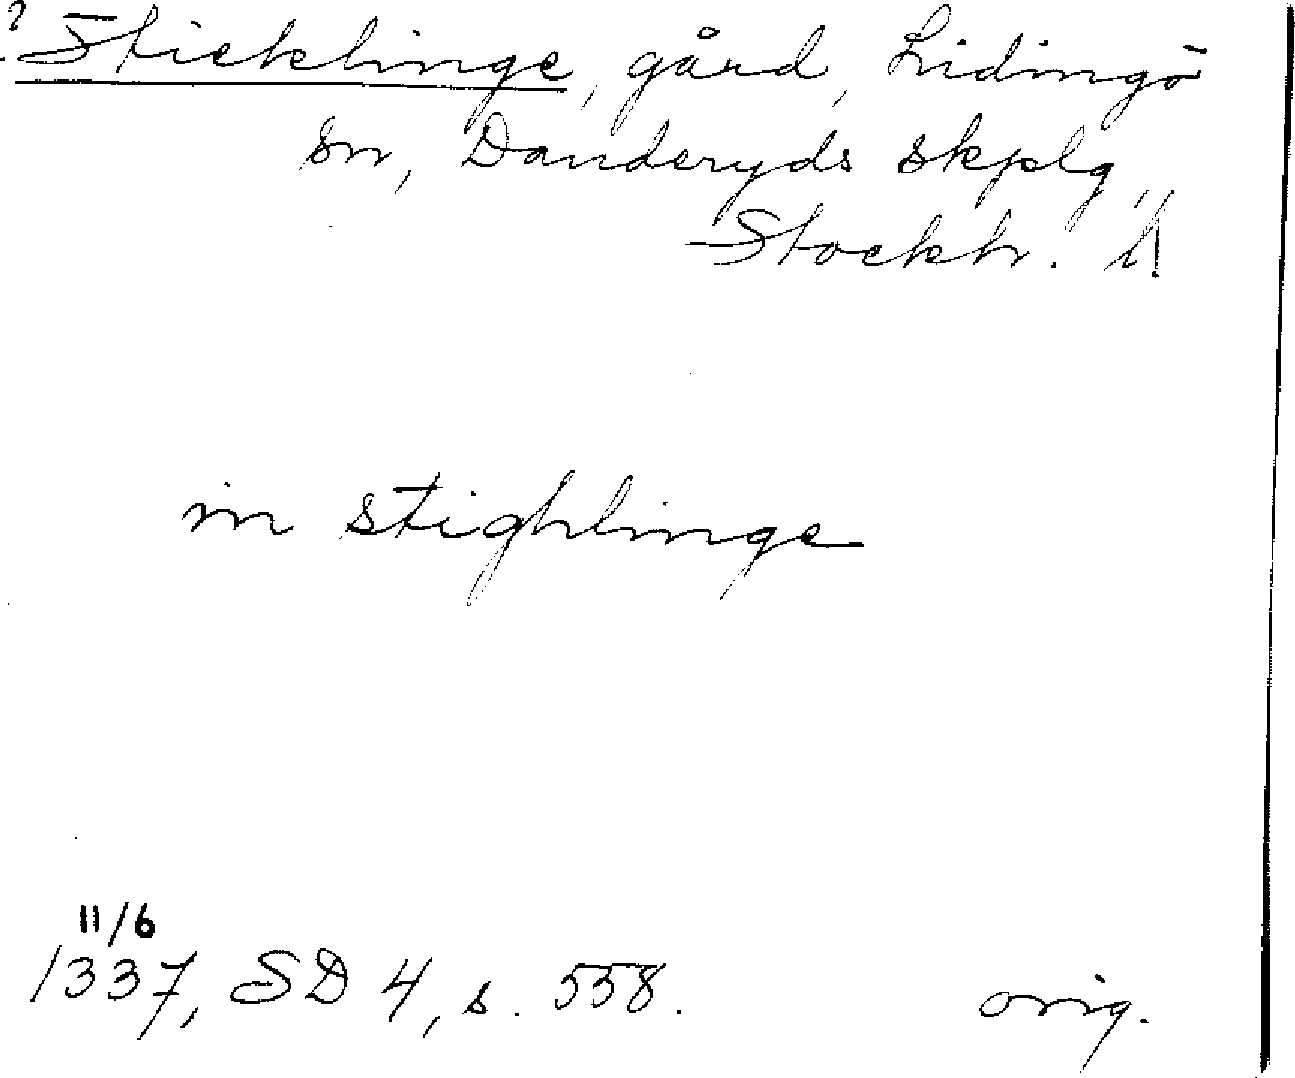 ? Sticklinge, gård, Lidingö
sn, Danderyds skplg,
Stockh. l.
in stighlinge
11/6
1337, SD 4, s. 558. orig.